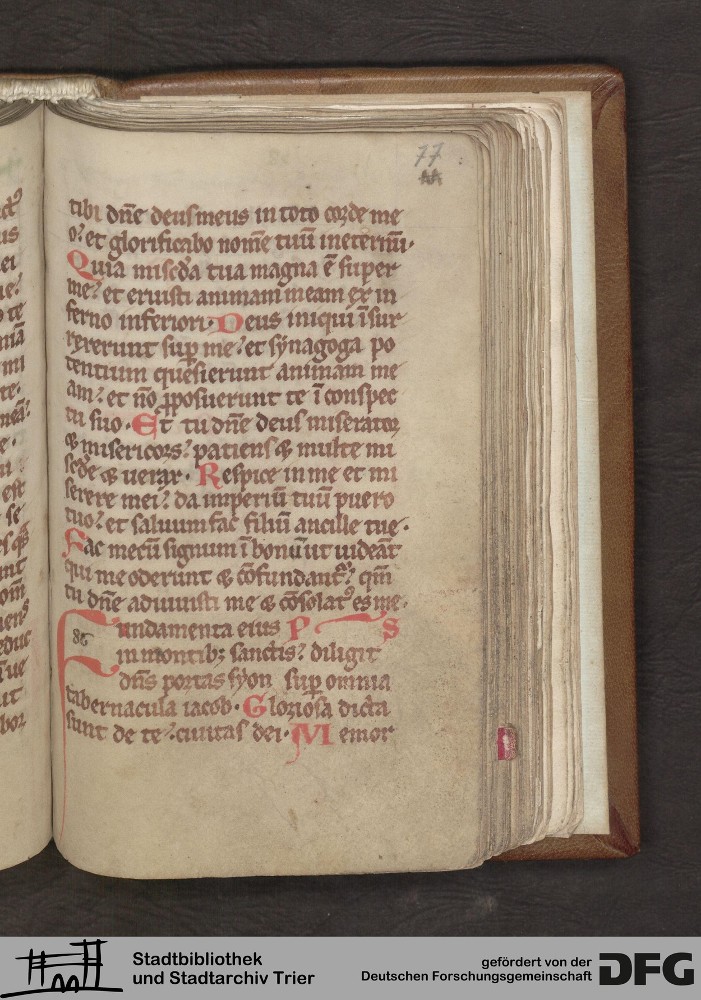 77
tibi dn̄e deus meus in toto corde me
o? et glorificabo nom̄e tuū ineternū·
Quia miscd̓a tua magna ē super
me? et eruisti animam meam ex in
ferno inferiori· Deus iniqui īsur
rexerunt sup̱ me? et synagoga po
tentium quesierunt animam me
am? et n̄o p̱posuerunt te ī conspec
tu suo· Et tu dn̄e deus miserator
& misericors? patiens & multe mi
sc̓de & uerax· Respice in me et mi
serere mei? da imperiū tuū puero
tuo? et saluum fac filiū ancille tue·
Fac mecū signum ī bonū ut uideāt
qui me oderunt & cōfundant᷑? qm̄
tu dn̄e adiuuisti me & cōsolatꝰ es me·
Fundamenta eius PS
86 in montibꝫ sanctis? diligit
dn̄s portas syon sup̱ omnia
tabernacula iacob· Gloriosa dicta
sunt de te? ciuitas dei· Memor
Stadtbibliothek
und Stadtarchiv Trier
gefördert von der
Deutschen Forschungsgemeinschaft
DFG